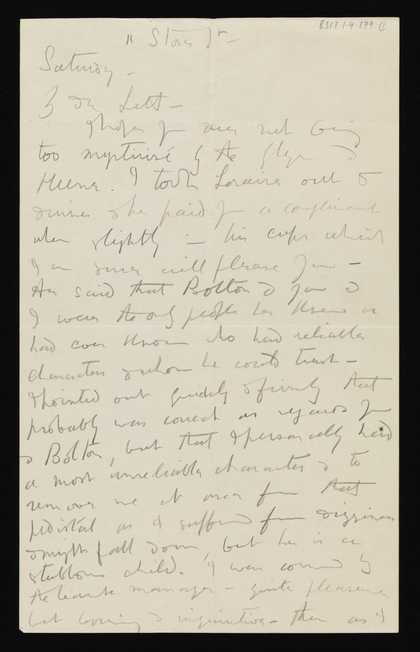 11 Store St -
Saturday -
My dear Lett -
I hope you are not being
too mystérisé by the
Heena. I took Loraine out to
dinner & he paid you a compliment
when slightly in his cups which
I am sure will please you -
He said that Bolton & you &
I were the only people he knew or
had ever known who had reliable
characters & whom he could trust -
I pointed out quickly & firmly that
probably was correct as regards you
& Bolton, but that I personally had
a most unreliable character & to
remove me at once from that
pedistal as I suffered from dizziness
& might fall down, but he is a
stubborn child. I was convoyed by
the manager - quite pleasant
but & inquisitive - then as I